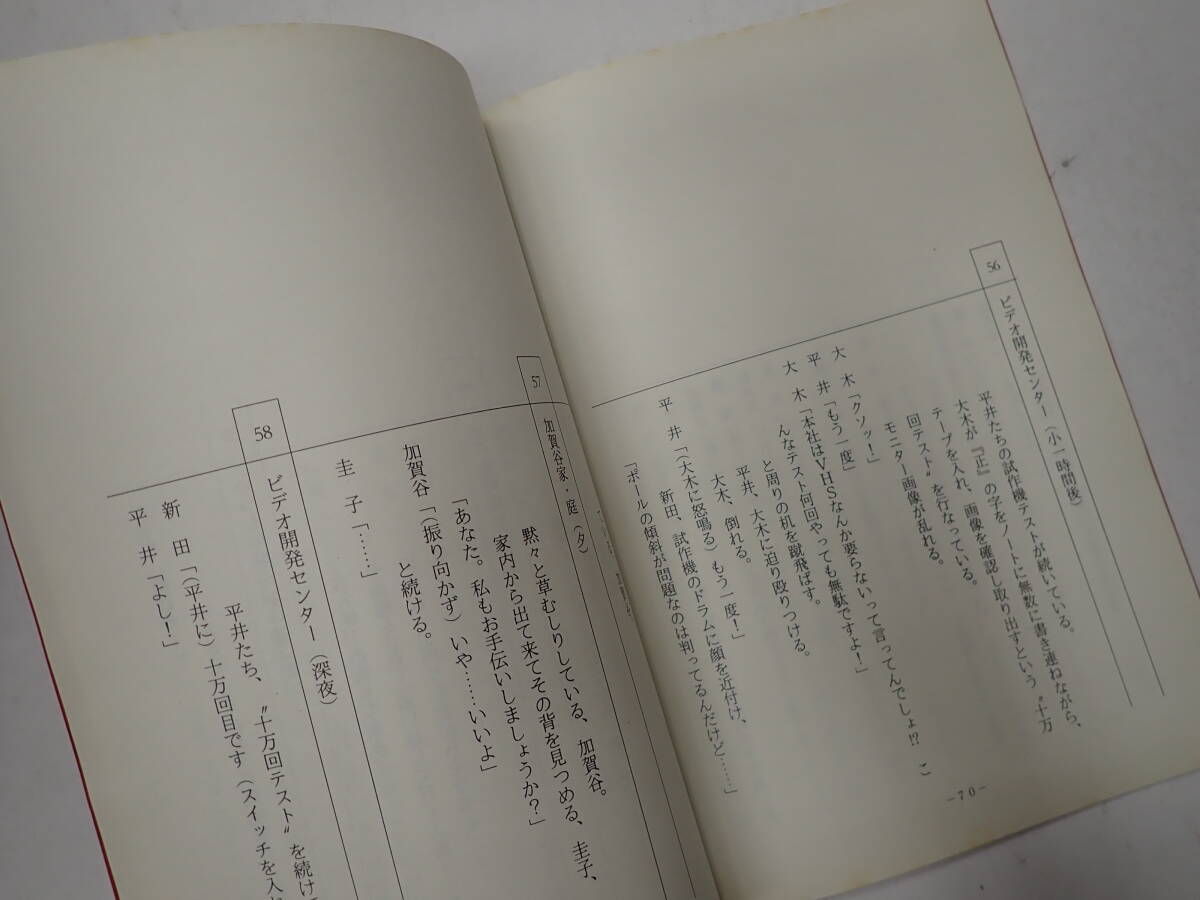 56
ビデオ開発センター（小一時間後）
平井たちの試作機テストが続いている。
大木が『正』の字をノートに無数に書き連ねながら、
テープを入れ、画像を確認し取り出すという〝十万
回テスト〟を行なっている。
モニター画像が乱れる。
大木「クソッ！」
平井「もう一度」
大木「本社はVHSなんか要らないって言ってんでしょ!? こ
んなテスト何回やっても無駄ですよ！」
と周りの机を蹴飛ばす。
平井、大木に迫り殴りつける。
大木、倒れる。
平井「（大木に怒鳴る）もう一度！」
新田、試作機のドラムに顔を近付け、
「ポールの傾斜が問題なのは判ってるんだけど……」
-70-
57
加賀谷家・庭（夕）
黙々と草むしりしている、加賀谷。
家内から出て来てその背を見つめる、圭子、
「あなた。私もお手伝いしましょうか？」
加賀谷「（振り向かず）いや……いいよ」
と続ける。
圭子「……」
58
ビデオ開発センター（深夜）
平井たち、〝十万回テスト〟を続け
新田「（平井に）十万回目です（スイッチを入
平井「よし！」